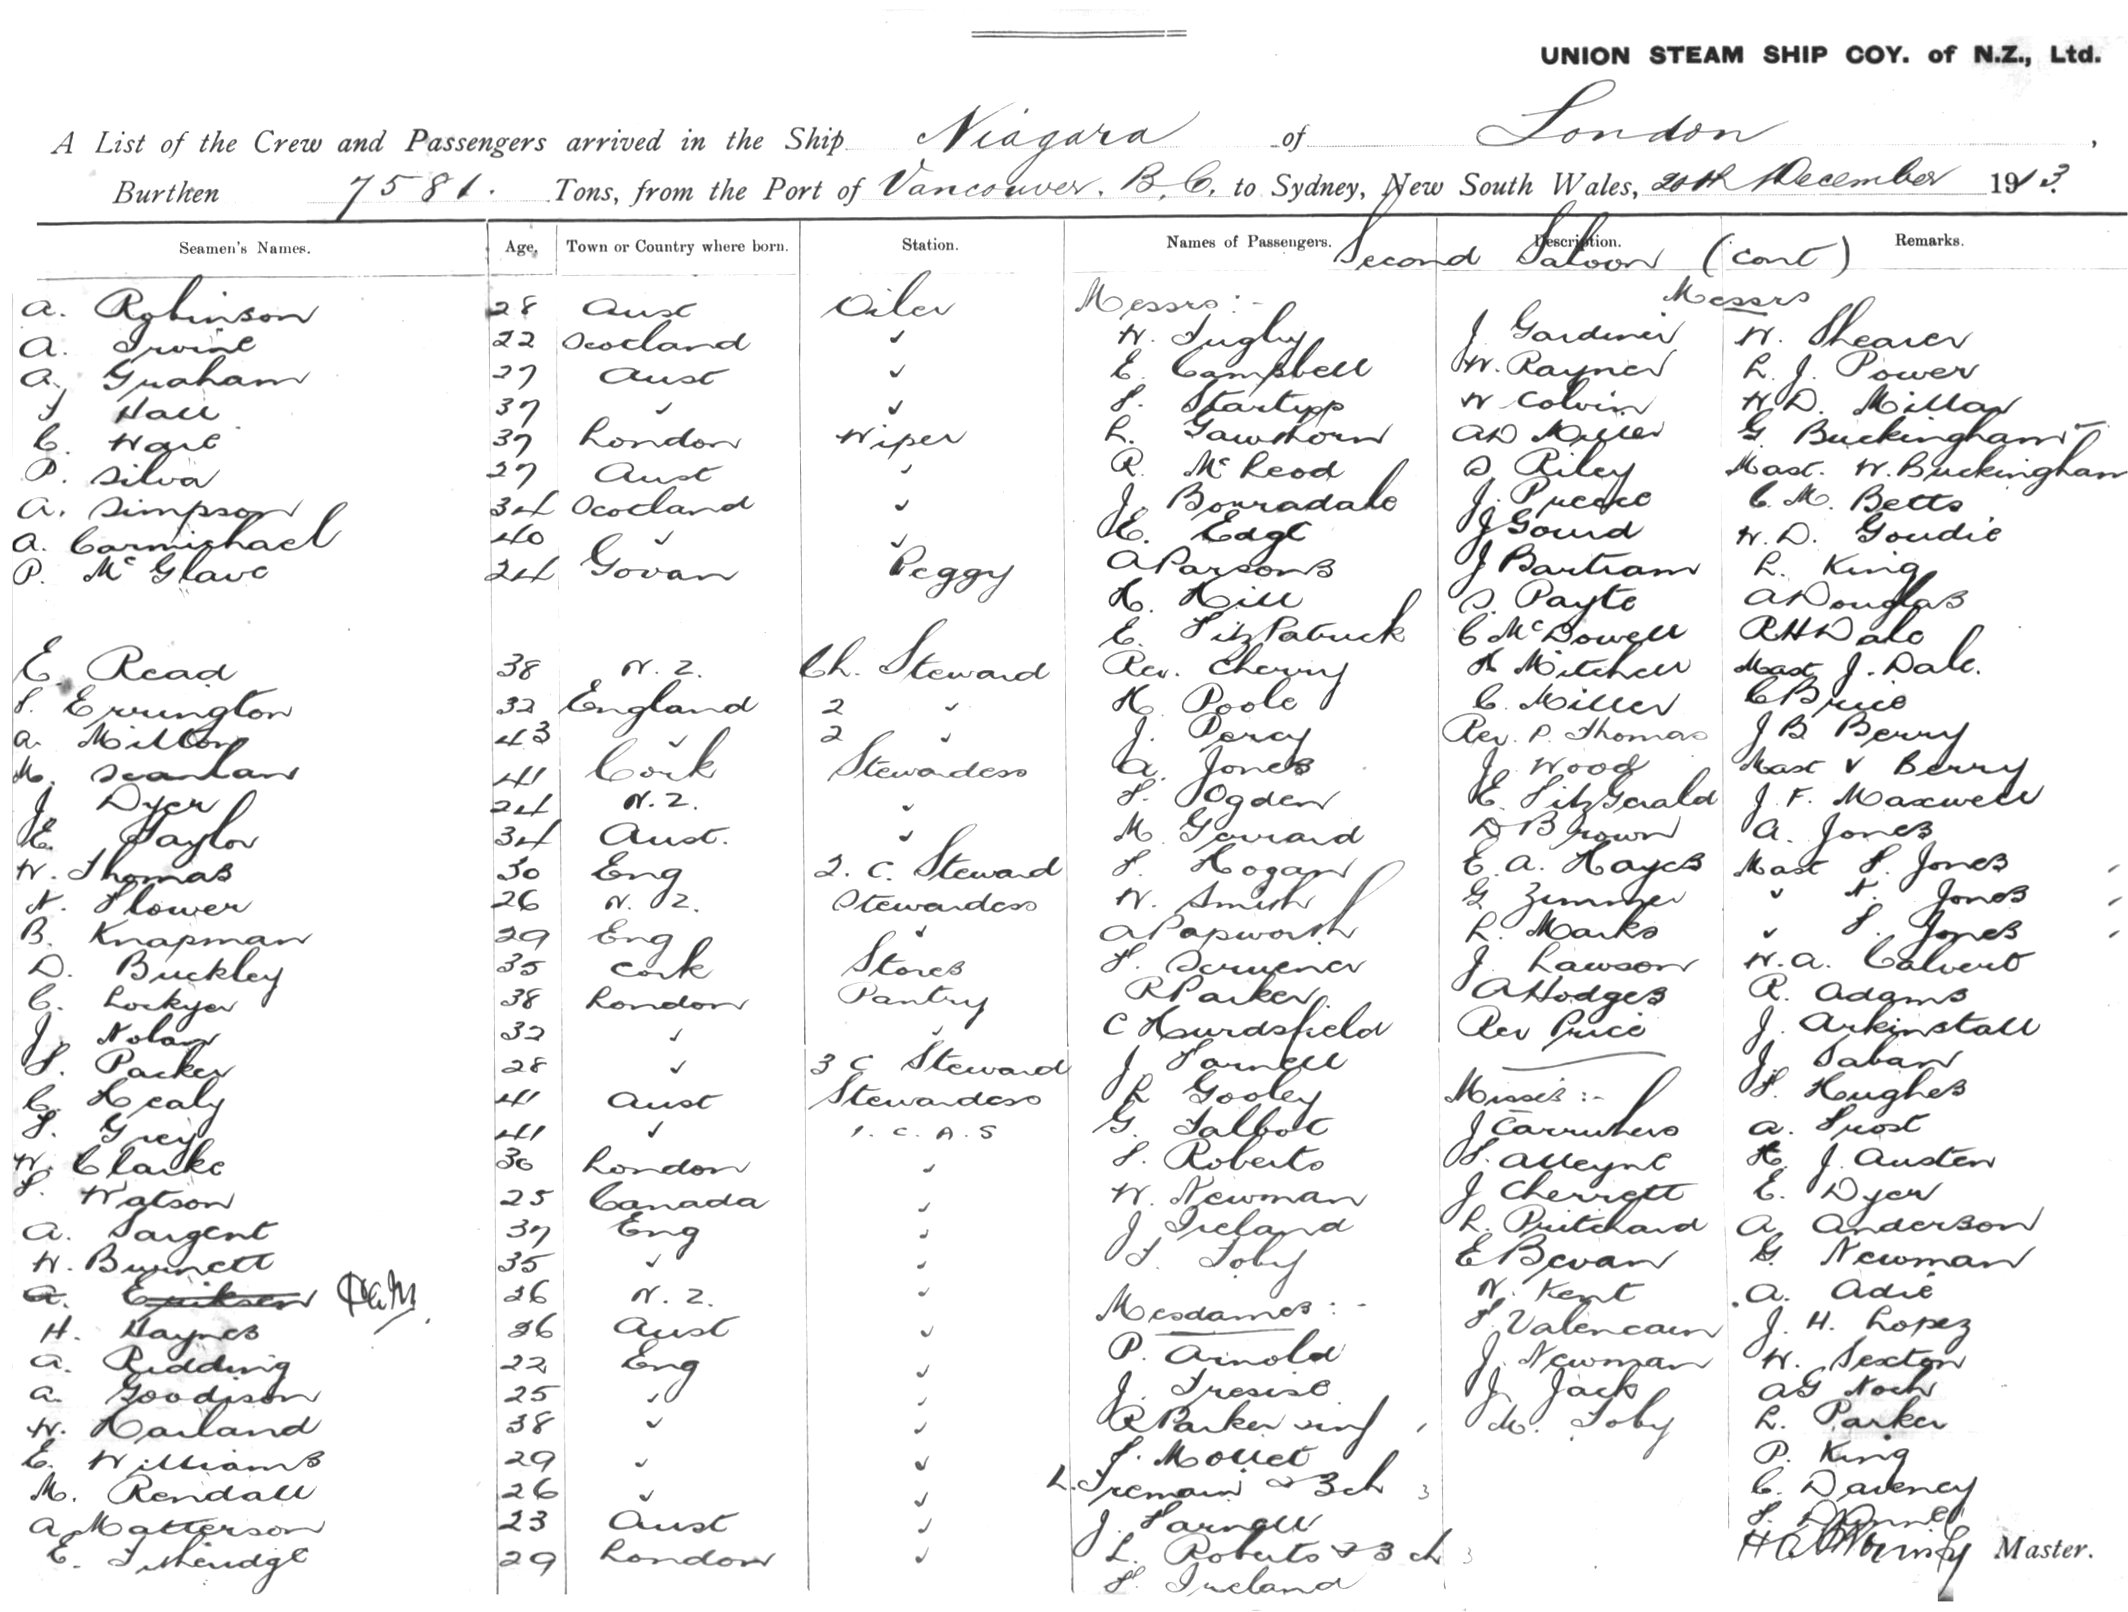 UNION STEAM SHIP COY. of N.Z., Ltd.
A List of the Crew and Passengers arrived in the Ship Niagara of London,
Burthen 7581. Tons, from the Port of Vancouver. B.C. to Sydney, New South Wales, 20th December 1913.
Seamen's Names. Age, Town or Country where born. Station. Names of Passengers. Description. Remarks.
Second Saloon (cont)
A. Robinson 28 Aust Oiler Messrs :- Messrs
A. Irvine 22 Scotland ✓ W. Tugby J Gardiner W. Shearer
A. Graham 27 Aust ✓ E. Campbell W. Rayner L. J. Power
T Hall 37 ✓ ✓ F. Startupp W Colvin W.D. Millar
C. Ware 37 London Wiper L. Gawthorn A D Miller G. Buckingham
P. Silva 27 Aust ✓ R. McLeod S. Riley Mast. W. Buckingham
A. Simpson 34 Scotland ✓ J. Borradale J. Preece C. M. Betts
A. Carmichael 40 ✓ ✓ E. Edge J Gourd W. D. Goudie
P. McGlave 24 Govan Peggy A Parsons J Bartram L. King
H. Hill S. Payte A Douglas
E. FitzPatrick C McDowell R H Dale
E. Read 38 N. Z. Ch. Steward Rev. Cherry H Mitchell Mast J. Dale.
F. Errington 32 England 2 ✓ H. Poole C. Miller C Price
A. Milton 43 ✓ 2 ✓ J. Percy Rev. P. Thomas J B Berry
M. Scanlan 41 Cork Stewardess A. Jones J Wood Mast V Berry
J Dyer 24 N. Z. ✓ F. Ogden E. FitzGerald J. F. Maxwell
E. Taylor 34 Aust. ✓ M Gerrard D Brown A. Jones
W. Thomas 30 Eng 2. C. Steward F. Hogan E. A. Hayes Mast F. Jones
N. Flower 26 N. Z. Stewardess W. Smith G Zimmer ✓ N. Jones
B. Knapman 29 Eng ✓ A Papworth L. Marks ✓ F. Jones
D. Buckley 35 Cork Stores F. Scrivener J Lawson W. A. Calvert
C. Lockyer 38 London Pantry R Parker. A Hodges R. Adams
J. Nolan 32 ✓ ✓ C Hurdsfield Rev Price J. Arkinstall
F. Packer 28 ✓ 3 C Steward J Farnell J. Saban
C. Healy 41 Aust Stewardess L Gooley Misses :- F. Hughes
F. Grey 41 ✓ 1. C. A. S G. Talbot J Carruthers A. Frost
W. Clarke 30 London ✓ F. Roberts F. Alleyne H. J. Austen
F. Watson 25 Canada ✓ W. Newman J Cherrett E. Dyer
A. Sargent 37 Eng ✓ J Ireland L. Pritchard A. Anderson
W. Burnett 35 ✓ ✓ T. Toby E Bevan G. Newman
A. Eriksen 26 N. Z. ✓ Mesdames :- N. Kent A. Adie
H. Haynes 26 Aust ✓ P. Arnold J. H. Lopez
A. Ridding 22 Eng ✓ J. Tresise J. Newman W. Sexton
A. Goodison 25 ✓ ✓ R Parker J. Jack A G
W. Harland 38 ✓ ✓ F. Mollet M. Toby L. Parker
E. Williams 29 ✓ ✓ L. Tremain & 3 ch 3 P. King
M. Rendall 26 ✓ ✓ J. Farnell C. Davency
A. Matterson 23 Aust ✓ L. Roberts & 3 ch 3 F.
E. 29 London ✓ F. Ireland Master.